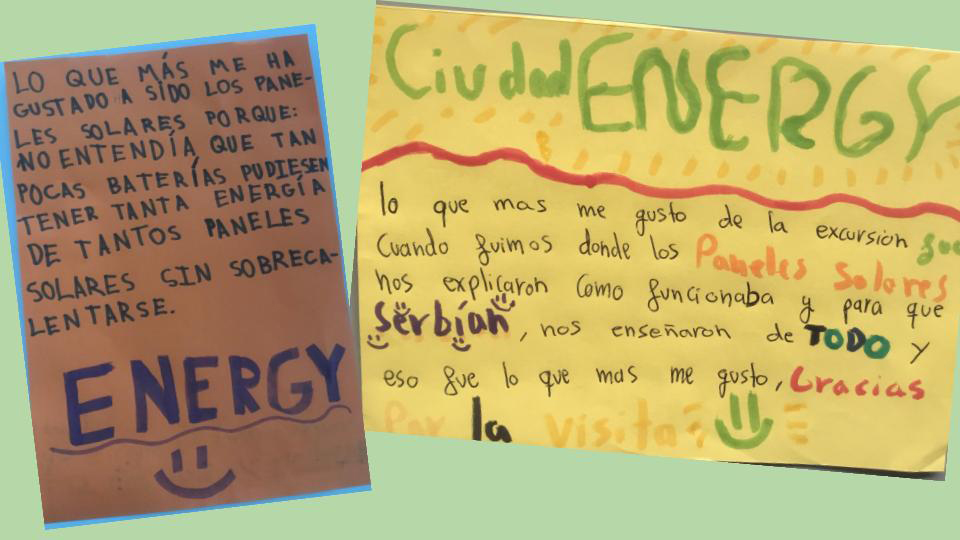 LO QUE MÁS ME HA
GUSTADO A SÍDO LOS PANE-
LES SOLARES PORQUE:
NO ENTENDÍA QUE TAN
POCAS BATERÍAS PUDIESEN
TENER TANTA ENERGÍA
DE TANTOS PANELES
SOLARES SIN SOBRECA-
LENTARSE.
ENERGY
Ciudad ENERGY
lo que mas me gusto de la excursion fue
Cuando fuimos donde los Paneles Solares
nos explicaron como funcionaba y para que
Serbian, nos enseñaron de TODO y
eso fue lo que mas me gusto, Gracias
Por la visita